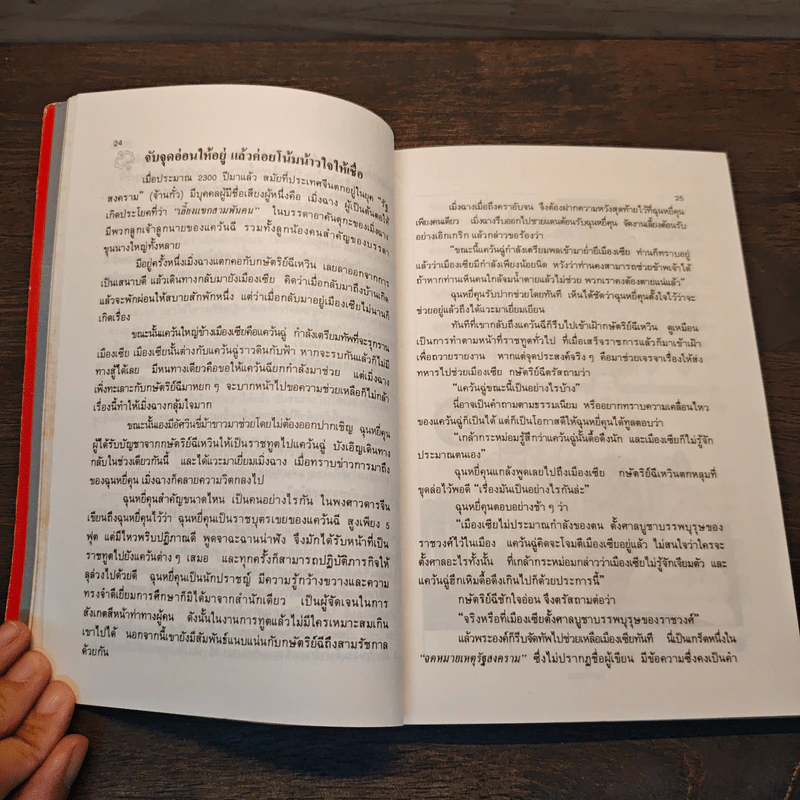 24
จับจุดอ่อนให้อยู่ แล้วค่อยโน้มน้าวใจให้เชื่อ
เมื่อประมาณ 2300 ปีมาแล้ว สมัยที่ประเทศจีนตกอยู่ในยุค "รัฐ
สงคราม" (จ้านกั๋ว) มีบุคคลผู้มีชื่อเสียงผู้หนึ่งคือ เมิ่งฉาง ผู้เป็นต้นตอให้
เกิดประโยคที่ว่า "เลี้ยงแขกสามพันคน" ในบรรดาอาคันตุกะของเมิ่งฉาง
มีพวกลูกเจ้าลูกนายของแคว้นฉี รวมทั้งลูกน้องคนสำคัญของบรรดา
ขุนนางใหญ่ทั้งหลาย
มีอยู่ครั้งหนึ่งเมิ่งฉางแตกคอกับกษัตริย์ฉีเหวิน เลยลาออกจากการ
เป็นเสนาบดี แล้วเดินทางกลับมายังเมืองเซีย คิดว่าเมื่อกลับมาถึงบ้านเกิด
แล้วจะพักผ่อนให้สบายสักพักหนึ่ง แต่ว่าเมื่อกลับมาอยู่เมืองเซียไม่นานก็
เกิดเรื่อง
ขณะนั้นแคว้นใหญ่ข้างเมืองเซียคือแคว้นฉู่ กำลังเตรียมทัพที่จะรุกราน
เมืองเซีย เมืองเซียนั้นต่างกับแคว้นฉู่ราวดินกับฟ้า หากจะรบกันแล้วก็ไม่มี
ทางสู้ได้เลย มีหนทางเดียวคือขอให้แคว้นฉียกกำลังมาช่วย แต่เมิ่งฉาง
เพิ่งทะเลาะกับกษัตริย์ฉีมาหยก ๆ จะบากหน้าไปขอความช่วยเหลือก็ไม่กล้า
เรื่องนี้ทำให้เมิ่งฉางกลุ้มใจมาก
ขณะนั้นเองมีอัศวินขี่ม้าขาวมาช่วยโดยไม่ต้องออกปากเชิญ ฉุนหยีคุน
ผู้ได้รับบัญชาจากกษัตริย์ฉีเหวินให้เป็นราชทูตไปแคว้นฉู่ บังเอิญเดินทาง
กลับในช่วงเดียวกันนี้ และได้แวะมาเยี่ยมเมิ่งฉาง เมื่อทราบข่าวการมาถึง
ของฉุนหยีคุน เมิ่งฉางก็คลายความวิตกลงไป
ฉุนหยีคุนสำคัญขนาดไหน เป็นคนอย่างไรกัน ในพงศาวดารจีน
เขียนถึงฉุนหยีคุนไว้ว่า ฉุนหยีคุนเป็นราชบุตรเขยของแคว้นฉี สูงเพียง 5
ฟุต แต่มีไหวพริบปฏิภาณดี พูดจาฉะฉานน่าฟัง จึงมักได้รับหน้าที่เป็น
ราชทูตไปยังแคว้นต่าง ๆ เสมอ และทุกครั้งก็สามารถปฏิบัติภารกิจให้
ลุล่วงไปด้วยดี ฉุนหยีคุนเป็นนักปราชญ์ มีความรู้กว้างขวางและความ
ทรงจำดีเยี่ยมการศึกษาก็มิได้มาจากสำนักเดียว เป็นผู้จัดเจนในการ
สังเกตสีหน้าท่าทางผู้คน ดังนั้นในงานการทูตแล้วไม่มีใครเหมาะสมเกิน
เขาไปได้ นอกจากนี้เขายังมีสัมพันธ์แนบแน่นกับกษัตริย์ฉีถึงสามรัชกาล
ด้วยกัน
25
เมิ่งฉางเมื่อถึงคราอับจน จึงต้องฝากความหวังสุดท้ายไว้ที่ฉุนหยีคุน
เพียงคนเดียว เมิ่งฉางรีบออกไปชายแดนต้อนรับฉุนหยีคุน จัดงานเลี้ยงต้อนรับ
อย่างเอิกเกริก แล้วกล่าวขอร้องว่า
"ขณะนี้แคว้นฉู่กำลังเตรียมพลเข้ามาย่ำยีเมืองเซีย ท่านก็ทราบอยู่
แล้วว่าเมืองเซียมีกำลังเพียงน้อยนิด หวังว่าท่านคงสามารถช่วยข้าพเจ้าได้
ถ้าหากท่านเห็นคนใกล้จมน้ำตายแล้วไม่ช่วย พวกเราคงต้องตายแน่แล้ว"
ฉุนหยีคุนรับปากช่วยโดยทันที เห็นได้ชัดว่าฉุนหยีคุนตั้งใจไว้ว่าจะ
ช่วยอยู่แล้วถึงได้แวะมาเยี่ยมเยียน
ทันทีที่เขากลับถึงแคว้นฉีก็รีบไปเข้าเฝ้ากษัตริย์ฉีเหวิน ดูเหมือน
เป็นการทำตามหน้าที่ราชทูตทั่วไป ที่เมื่อเสร็จราชการแล้วก็มาเข้าเฝ้า
เพื่อถวายรายงาน หากแต่จุดประสงค์จริง ๆ คือมาช่วยเจรจาเรื่องให้ส่ง
ทหารไปช่วยเมืองเซีย กษัตริย์ฉีตรัสถามว่า
"แคว้นฉู่ขณะนี้เป็นอย่างไรบ้าง"
นี่อาจเป็นคำถามตามธรรมเนียม หรืออยากทราบความเคลื่อนไหว
ของแคว้นฉู่ก็เป็นได้ แต่ก็เป็นโอกาสดีให้ฉุนหยีคุนได้ทูลตอบว่า
"เกล้ากระหม่อมรู้สึกว่าแคว้นฉู่นั้นดื้อดึงนัก และเมืองเซียก็ไม่รู้จัก
ประมาณตนเอง"
ฉุนหยีคุนแกล้งพูดเลยไปถึงเมืองเซีย กษัตริย์ฉีเหวินตกหลุมที่
ขุดล่อไว้พอดี "เรื่องมันเป็นอย่างไรกันล่ะ"
ฉุนหยีคุนตอบอย่างช้า ๆ ว่า
"เมืองเซียไม่ประมาณกำลังของตน ตั้งศาลบูชาบรรพบุรุษของ
ราชวงศ์ไว้ในเมือง แคว้นฉู่คิดจะโจมตีเมืองเซียอยู่แล้ว ไม่สนใจว่าใครจะ
ตั้งศาลอะไรทั้งนั้น ที่เกล้ากระหม่อมกล่าวว่าเมืองเซียไม่รู้จักเจียมตัว และ
แคว้นฉู่ฮึกเหิมดื้อดึงเกินไปก็ด้วยประการนี้"
กษัตริย์ฉีชักใจอ่อน จึงตรัสถามต่อว่า
"จริงหรือที่เมืองเซียตั้งศาลบูชาบรรพบุรุษของราชวงศ์"
แล้วพระองค์ก็รีบจัดทัพไปช่วยเหลือเมืองเซียทันที นี่เป็นเกร็ดหนึ่งใน
"จดหมายเหตุรัฐสงคราม" ซึ่งไม่ปรากฏชื่อผู้เขียน มีข้อความซึ่งคงเป็นคำ